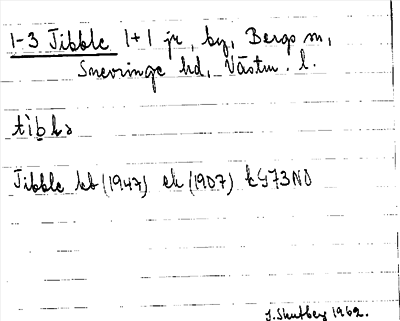 1-3 Tibble 1+1 jr, by, Bergs sn,
Snevringe hd, Västm. l.
tìbḷa
Tibble kb (1947) ek (1907) k G73NO
J. Skutberg 1962.